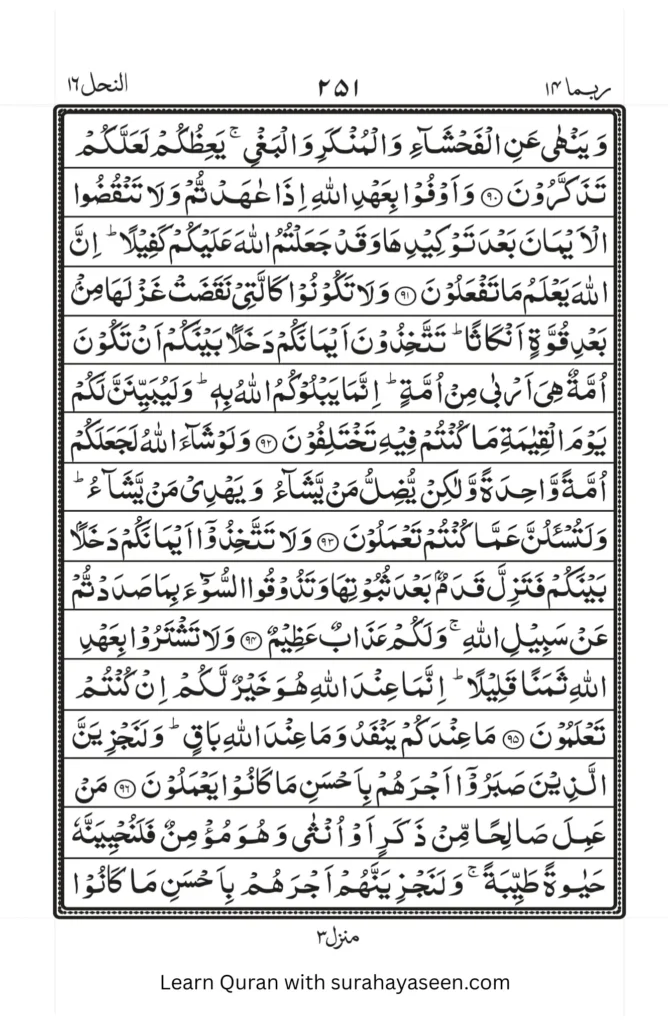 النحل ١٦ ٢٥١ ربما ١٤
وَيَنۡهٰى عَنِ الۡفَحۡشَآءِ وَالۡمُنۡكَرِ وَالۡبَغۡىِ‌ۚ يَعِظُكُمۡ لَعَلَّكُمۡ
تَذَكَّرُوۡنَ ﴿۹۰﴾ وَ اَوۡفُوۡا بِعَهۡدِ اللّٰهِ اِذَا عٰهَدْتُّمۡ وَلَا تَنۡقُضُوا
الۡاَيۡمَانَ بَعۡدَ تَوۡكِيۡدِهَا وَقَدۡ جَعَلۡتُمُ اللّٰهَ عَلَيۡكُمۡ كَفِيۡلًا‌ ؕ اِنَّ
اللّٰهَ يَعۡلَمُ مَا تَفۡعَلُوۡنَ ﴿۹۱﴾ وَلَا تَكُوۡنُوۡا كَالَّتِىۡ نَقَضَتۡ غَزۡلَهَا مِنۡۢ
بَعۡدِ قُوَّةٍ اَنۡكَاثًا ؕ تَتَّخِذُوۡنَ اَيۡمَانَكُمۡ دَخَلًاۢ بَيۡنَكُمۡ اَنۡ تَكُوۡنَ
اُمَّةٌ هِىَ اَرۡبٰى مِنۡ اُمَّةٍ‌ ؕ اِنَّمَا يَبۡلُوۡكُمُ اللّٰهُ بِهٖ‌ ؕ وَلَيُبَيِّنَنَّ لَـكُمۡ
يَوۡمَ الۡقِيٰمَةِ مَا كُنۡـتُمۡ فِيۡهِ تَخۡتَلِفُوۡنَ ﴿۹۲﴾ وَلَوۡ شَآءَ اللّٰهُ لَجَـعَلَكُمۡ
اُمَّةً وَّاحِدَةً وَّلٰـكِنۡ يُّضِلُّ مَنۡ يَّشَآءُ وَيَهۡدِىۡ مَنۡ يَّشَآءُ‌ ؕ
وَلَـتُسۡـئَلُنَّ عَمَّا كُنۡتُمۡ تَعۡمَلُوۡنَ ﴿۹۳﴾ وَلَا تَتَّخِذُوۡۤا اَيۡمَانَكُمۡ دَخَلًاۢ
بَيۡنَكُمۡ فَتَزِلَّ قَدَمٌۢ بَعۡدَ ثُبُوۡتِهَا وَتَذُوۡقُوا السُّوۡۤءَ بِمَا صَدَدْتُّمۡ
عَنۡ سَبِيۡلِ اللّٰهِ‌ۚ وَ لَـكُمۡ عَذَابٌ عَظِيۡمٌ ﴿۹۴﴾ وَلَا تَشۡتَرُوۡا بِعَهۡدِ
اللّٰهِ ثَمَنًا قَلِيۡلًا‌ ؕ اِنَّمَا عِنۡدَ اللّٰهِ هُوَ خَيۡرٌ لَّـكُمۡ اِنۡ كُنۡتُمۡ
تَعۡلَمُوۡنَ ﴿۹۵﴾ مَا عِنۡدَكُمۡ يَنۡفَدُ‌ وَمَا عِنۡدَ اللّٰهِ بَاقٍ‌ؕ وَلَـنَجۡزِيَنَّ
الَّذِيۡنَ صَبَرُوۡۤا اَجۡرَهُمۡ بِاَحۡسَنِ مَا كَانُوۡا يَعۡمَلُوۡنَ ﴿۹۶﴾ مَنۡ
عَمِلَ صَالِحًا مِّنۡ ذَكَرٍ اَوۡ اُنۡثٰى وَهُوَ مُؤۡمِنٌ فَلَـنُحۡيِيَنَّهٗ
حَيٰوةً طَيِّبَةً‌ ۚ وَلَـنَجۡزِيَـنَّهُمۡ اَجۡرَهُمۡ بِاَحۡسَنِ مَا كَانُوۡا
منزل ٣
Learn Quran with surahayaseen.com